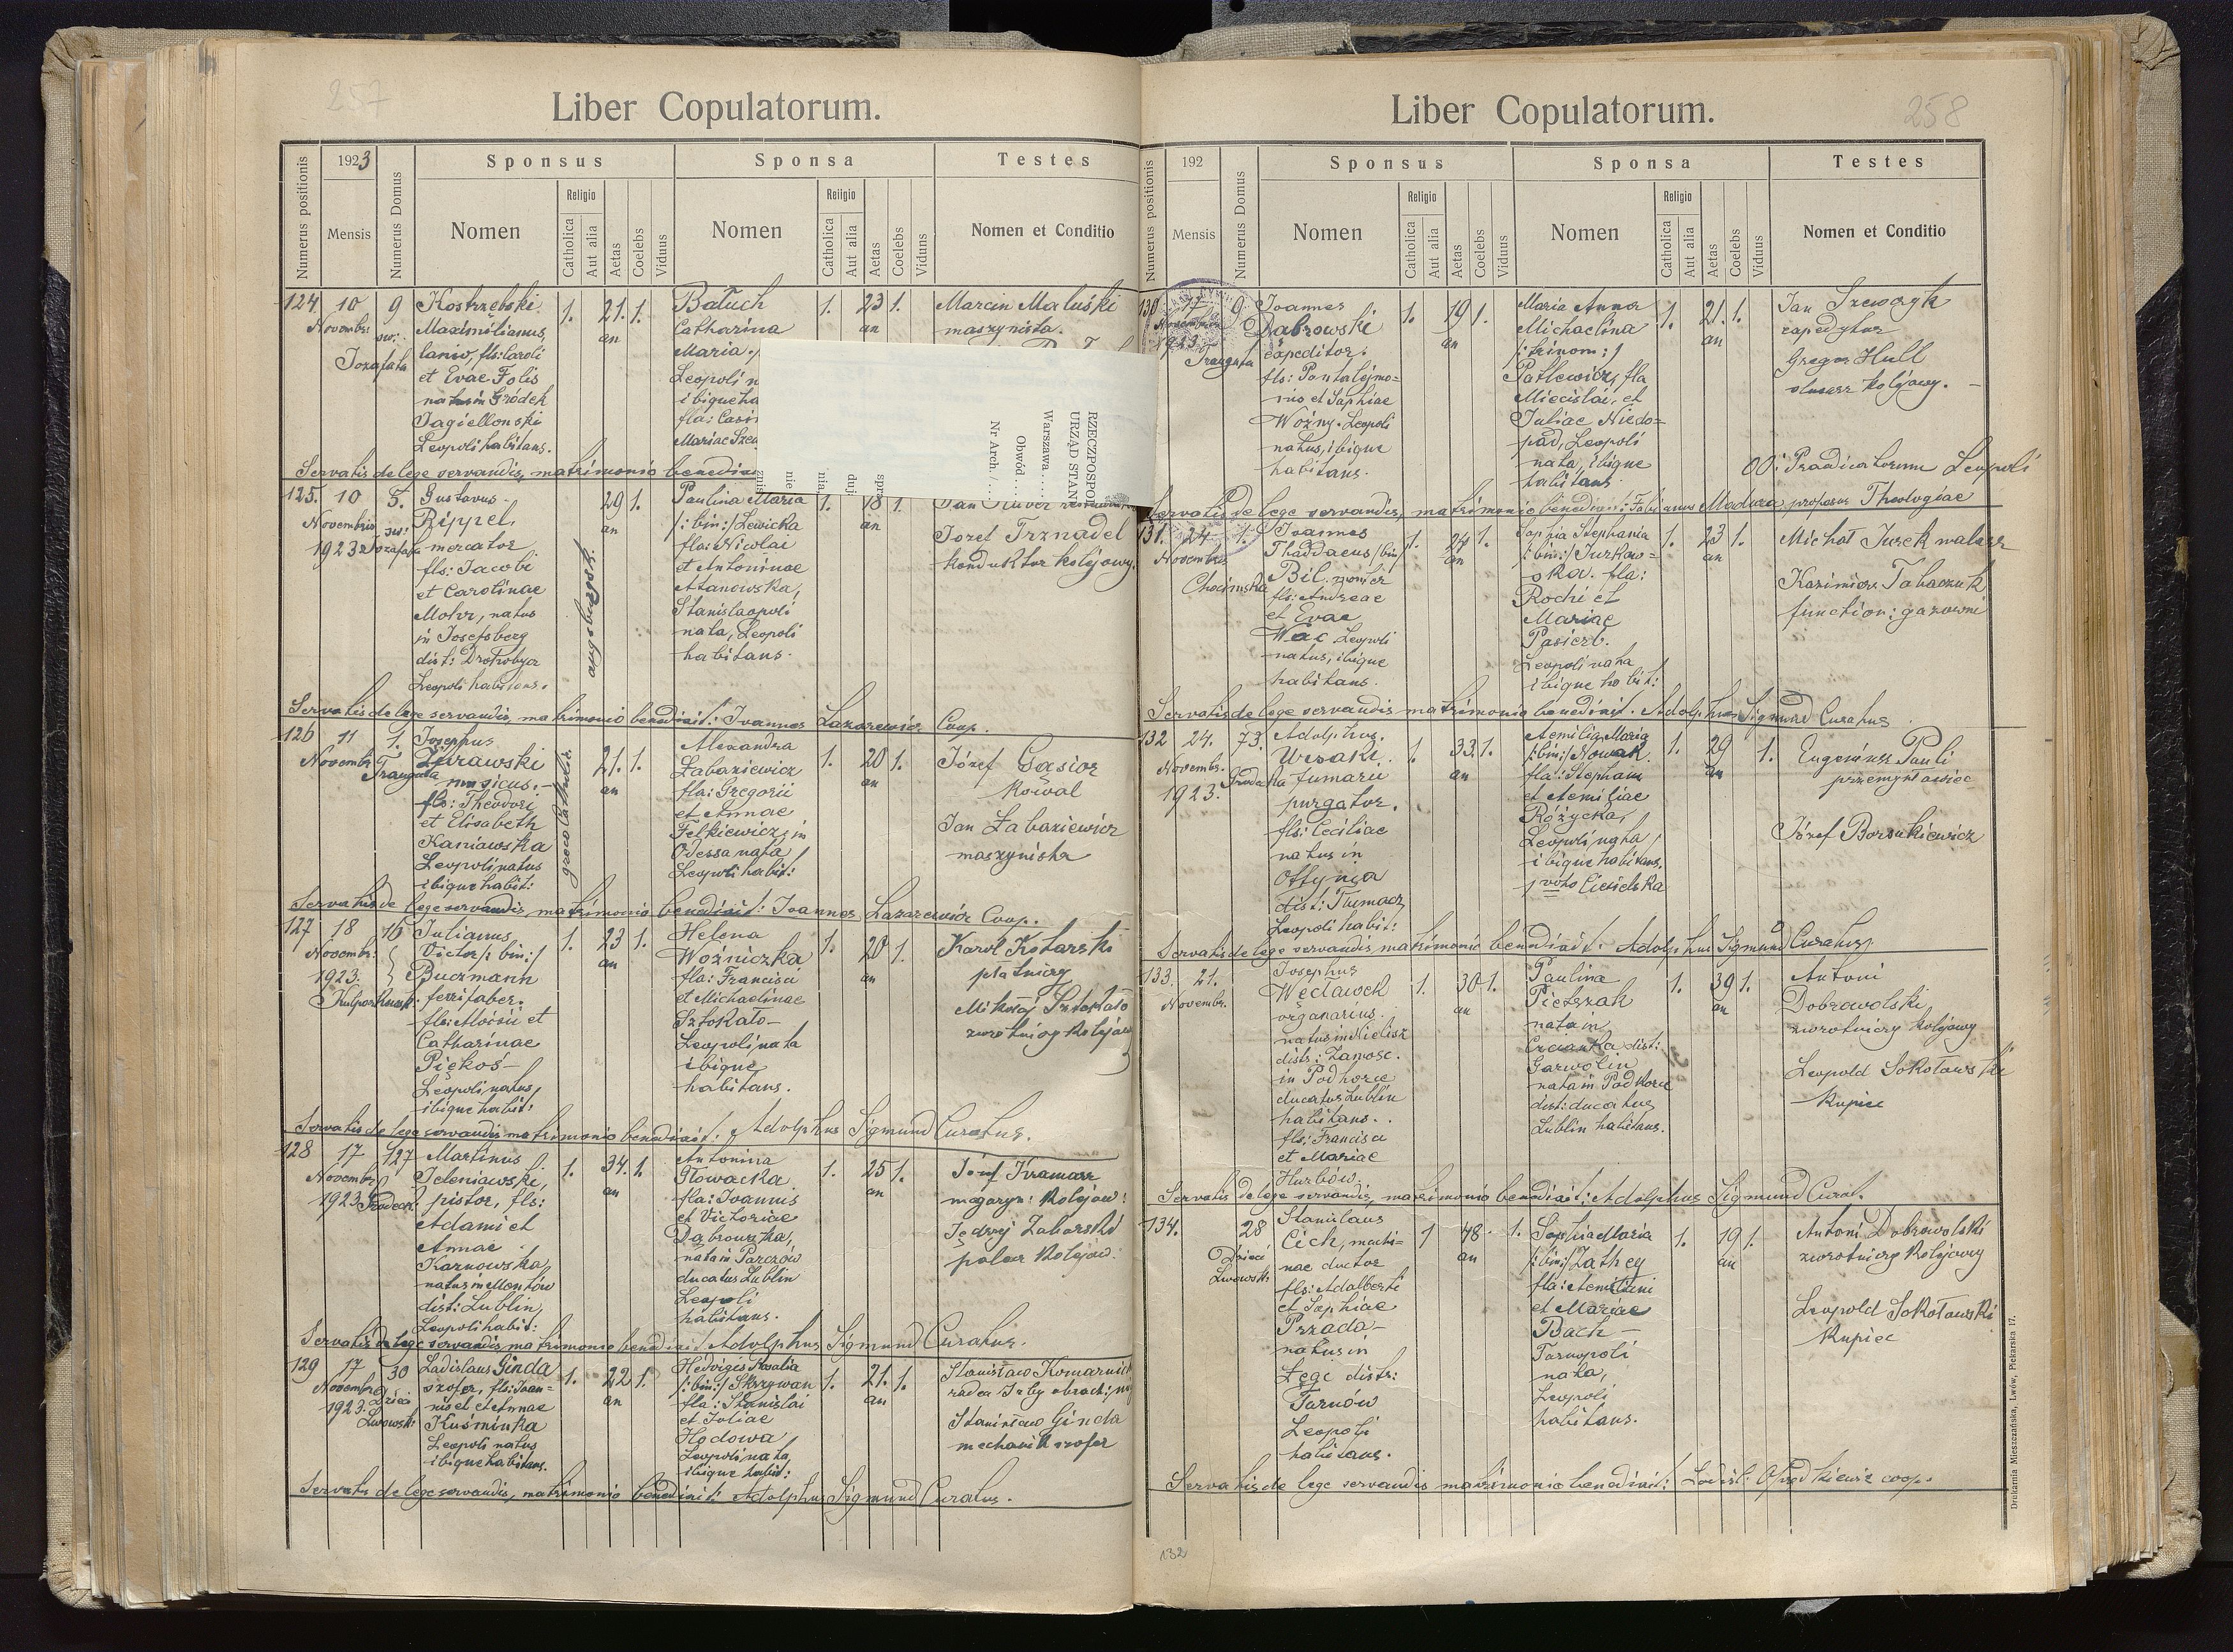 257
Liber Copulatorum.
Numerus positionis
1923
Mensis
Numerus Domus
Sponsus
Nomen
Religio
Catholica
Aut alia
Aetas
Coelebs
Viduus
Sponsa
Nomen
Religio
Catholica
Aut alia
Aetas
Coelebs
Viduus
Testes
Nomen et Conditio
124 10 9 Kostrzebski 1. 21. 1. Batuch 1. 23 1. Marcin Maluski
Novembr. Maximilianus, an Catharina an maszynista.
św. Jozafata
fls: Caroli
et Evae Folis
natus in Gródek
Jagiellonski
Leopoli habitans.
Maria
Leopoli n
ibique ha
fla: Casi
Mariae Szen
RZECZPOSPOL
URZĄD STAN
Warszawa
Obwód
Nr Arch. /
Servatis de lege servandis, matrimonio
125. 10 5. Gustavus 29 1. Paulina Maria 1. 18 1.
Novembris Rippel, an /: bin:/ Lewicka an Jozef Trznadel
1923 św. Jozafata mercator fla: Nicolai konduktor kolejowy.
fls: Jacobi et Antoninae
et Carolinae
Mohr, natus Stanislaopoli
in Josefsberg nata, Leopoli
dist: Drohobycz habitans.
Leopoli habitans.
augsburgsk.
Servatis de lege servandis, matrimonio benedixit: Joannes Lazarewicz Coop.
126 11 1. Josephus 21. 1. Alexandra 1. 20 1. Józef Gąsior
Novembr. Traugutta Żurawski an Łabaziewicz an Kowal
musicus. fla: Gregorii
fls: Theodori et Annae Jan Łabaziewicz
et Elisabeth Felkiewicz, in maszynista
Kaniawska Odessa nata
Leopoli natus Leopoli habit:
ibique habit:
graeco Catholic.
Servatis de lege servandis, matrimonio benedixit: Joannes Lazarewicz Coop.
127 18 16 Julianus 1. 23 1. Helena 1. 20 1. Karol Kotarski
Novembr: Victor /: bin:/ an Woźniczka an płatniczy
1923. Buczmann fla: Francisci
Kulparkowsk. ferrifaber. et Michaelinae Mikołaj Sztokało
fls: Moisii et Sztokało zwrotniczy kolejow
Catharinae Leopoli nata
Piękoś ibique
Leopoli natus, habitans.
ibique habit:
Servatis de lege servandis matrimonio benedixit: Adolphus Sigmund Curatus.
128 17 127 Martinus 1. 34. 1. Antonina 1. 25 1. Józef Kramarz
Novembr. Jeleniawski, an Głowacka an magazyn: kolejow:
1923 Grodeck. pistor, fls: fla: Joannis
Adami et et Victoriae Jędrzej Zaborski
Annae Dąbrowska, palacz kolejow:
Karnowska, nata in Parczów
natus in Montów ducatus Lublin
dist: Lublin, Leopoli
Leopoli habit: habitans.
Servatis de lege servandis matrimonio benedixit: Adolphus Sigmund Curatus.
129 17 30 Ladislaus Ginda 1. 22 1. Hedvigis Rosalia 1. 21. 1. Stanisław Komarnick
Novembr. szofer, fls: Joan- an /: bin:/ Skrzywan an radca Izby obrach:
1923. Dzieci nis et Annae fla: Stanislai
Lwowsk: Kuśmińka et Juliae Stanisław Ginda
Leopoli natus Hodowa, mechanik szofer
ibique habitans. Leopoli nata,
ibique habit:
Servatis de lege servandis, matrimonio benedixit: Adolphus Sigmund Curatus.
258
Liber Copulatorum.
Numerus positionis
192
Mensis
Numerus Domus
Sponsus
Nomen
Religio
Catholica
Aut alia
Aetas
Coelebs
Viduus
Sponsa
Nomen
Religio
Catholica
Aut alia
Aetas
Coelebs
Viduus
Testes
Nomen et Conditio
130 17 9 Joannes 1. 19 1. Maria Anna 1. 21. 1. Jan Szewczyk
Novembris Dąbrowski an Michaelina an expedytor
1923. expeditor. /: trinom:/ Gregor Hull
Traugutta fls: Pantalejmo- Patlewicz, fla ślusarz kolejowy.
nis et Sophiae Miecislai, et
Woźny. Leopoli Juliae Niedo-
natus, ibique pad, Leopoli
habitans. nata, ibique
habitans.
OO: Praedicatorum Leopoli
Servatis de lege servandis, matrimonio benedixit: Fabianus Madura professus Theologiae
131. 24 1. Joannes 1. 24 1. Sophia Stephania 1. 23 1. Michał Jurek malarz
Novembr. Thaddaeus /bin/ an /: bin:/ Jurkow- an
Chocimska Bil. ska. fla: Kazimierz Tabaczuk
fls: Andreae Rochi et function: gazowni
et Evae Mariae
Wac Leopoli Pasierb.
natus, ibique Leopoli nata
habitans. ibique habit:
Servatis de lege servandis matrimonio benedixit. Adolphus Sigmund Curatus.
132 24. 73. Adolphus. 1. 33. 1. Aemilia Maria 1. 29 1. Eugeniusz Pauli
Novembr. Urzaki. an /: bin:/ Nowak. an przemysłowiec
1923. Grodecka fumarii fla: Stephani
purgator. et Aemiliae
fls: Ceciliae Różycka, Józef Borsukiewicz
natus in Leopoli nata,
Ottynia ibique habitans.
dist: Tłumacz 1 voto Cicielska
Leopoli habit:
Servatis de lege servandis matrimonio benedixit: Adolphus Sigmund Curatus.
133. 21. Josephus 1. 30 1. Paulina 1. 39 1. Antoni
Novembr. Węcławek an Pietrzak an Dobrowolski,
organarius. nata in zwrotniczy kolejowy
natus in Nielisz dist:
distr: Zamosc. Garwolin Leopold Sokołowski
in Podhorce nata in Podhorce Kupiec
ducatus Lublin dist: ducatus
habitans. Lublin habitans.
fls: Francisci
et Mariae
Hurbów.
Servatis de lege servandis, matrimonio benedixit: Adolphus Sigmund Curat.
134. 28 Stanislaus 1 48. 1. Sophia Maria 1. 19 1. Antoni Dobrowolski
Dzieci Cich, machi- an /: bin:/ Zathey an zwrotniczy kolejowy
Lwowsk: nae ductor fla: Aemiliani
fls: Adalberti et Mariae Leopold Sokołowski
et Sophiae Bach — Kupiec
Przada- Tarnopoli
natus in nata,
Łęgi distr: Leopoli
Tarnów habitans.
Leopoli
habitans.
Servatis de lege servandis matrimonio benedixit: coop.
132
Drukarnia Mieszczańska, Lwów, Piekarska 17.